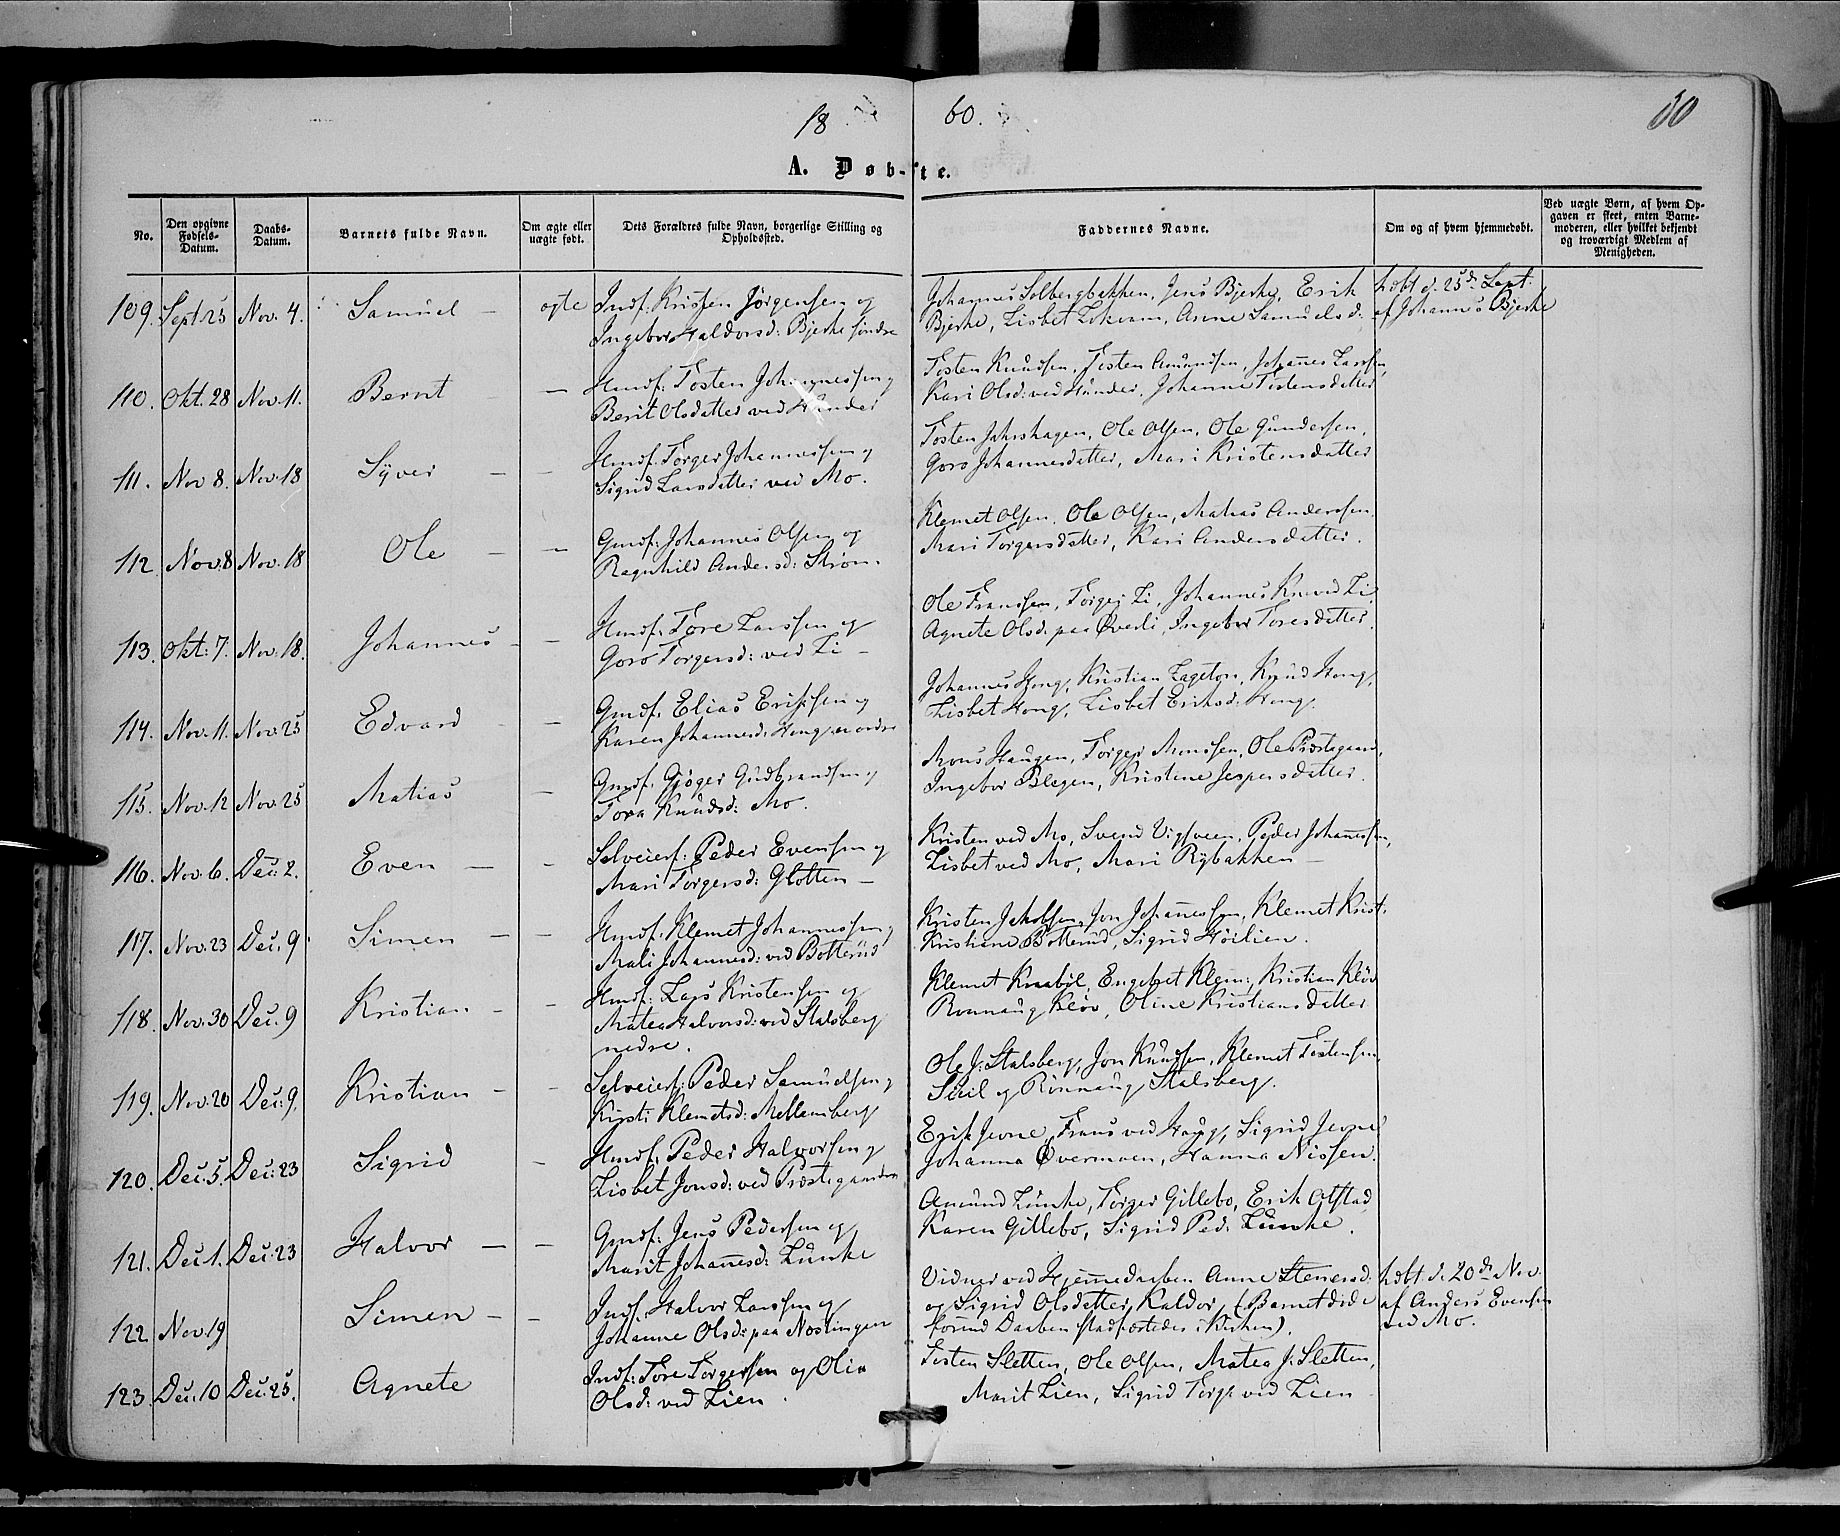 18 60. 80
A. Døb-fte.
No.
Den opgivne Fødsels-Datum.
Daabs-Datum.
Barnets fulde Navn.
Om ægte eller uægte født.
Dets Forældres fulde Navn, borgerlige Stilling og Opholdssted.
Faddernes Navne.
Om og af hvem hjemmedøbt.
Ved uægte Børn, af hvem Opgaven er skeet, enten Barnemoderen, eller hvilket bekjendt og troværdigt Medlem af Menigheden.
109. Sept 25 Nov. 4. Samuel – ægte Indf: Kristen Jörgensen og
Ingebor Haldorsd: Bjerke söndre
Johannes Solbergbakken, Jens Bjerke, Erik
Bjerke, Lisbet Lokvam, Anne Samuelsd.
hdbt d. 25de Sept.
af Johannes Bjerke
110. Okt. 28 Nov. 11. Bernt — Hmdf: Tosten Johannessen og
Berit Olsdatter ved Hunder
Tosten Knudsen, Josten Amundsen, Johannes Larssen,
Kari Olsd: ved Hunder, Johanne Tostensdatter
111. Nov 8. Nov. 18 Syver – – Hmdf: Torger Johannessen og
Sigrid Larsdatter ved Mo.
Tosten Jahrshagen, Ole Olsen, Ole Gundersen,
Goro Johannesdatter, Mari Kristensdatter
112 Nov. 8 Nov. 18 Ole – – Gmdf: Johannes Olsen og
Ragnhild Andersd: Ström.
Klemet Olsen, Ole Olsen, Matias Anderssen
Mari Torgersdatter, Kari Andersdatter.
113. Okt: 7. Nov. 18. Johannes – – Hmdf: Tore Larssen og
Goro Torgersd: ved Li –
Ole Franssen, Torger Li, Johannes Knud Li
Agnete Olsd. paa Överli, Ingebor Toresdatter
114. Nov. 11. Nov. 25 Edvard – – Gmdf: Elias Erikssen og
Karen Johannesd: Hong nordre
Johannes Hong, Kristian Lageton, Knud Hong,
Lisbet Hong, Lisbet Eriksd: Hong.
115. Nov. 12 Nov. 25 Matias – Gmdf: Gjöger Gudbrandsen og
Tora Knudsd: Mo.
Mons Haugen, Torger Monssen, Ole Præstegaard,
Ingebor Blegen, Kristine Jespersdatter.
116. Nov. 6. Dec: 2. Even – – Selveierf: Peder Evensen og
Mari Torgersd: Glotten –
Kristen ved Mo, Svend Vigsveen, Peder Johannessen,
Lisbet ved Mo, Mari Rybakken –
117. Nov. 23 Dec. 9 Simen – – Hmdf: Klemet Johannessen og
Mali Johannesd: ved Botterud
Kristen Jakobsen, Jon Johannessen, Klemet Krist.
Kristiane Botterud, Sigrid Höilien.
118. Nov: 30 Dec: 9 Kristian – – Hmdf: Lars Kristensen og
Matea Halvorsd: ved Stalsberg
nedre.
Klemet Kraaböl, Engebret Klem:, Kristian Klöv
Ronnaug Klöv, Oline Kristiansdatter
119. Nov. 20 Dec: 9. Kristian – – Selveierf: Peder Samuelsen og
Kirsti Klemetsd: Mellemberg
Ole J: Stalsberg, Jon Knudsen, Klemet Tostensen
Siril og Rönnaug Stalsberg.
120. Dec: 5. Dec: 23 Sigrid – Hmdf: Peder Halvorsen og
Lisbet Jonsd: ved Præstegaarden
Erik Jevne, Frans ved Haug, Sigrid Jevne
Johanna Övermoen, Hanna Nissen.
121. Dec 1. Dec: 23 Halvor – – Gmdf: Jens Pedersen og
Marit Johannesd: Lunke
Amund Lunke, Torger Gillebo, Erik Olstad
Karen Gillebo, Sigrid Ped: Lunke.
122 Nov 19 Simen – – Indf: Halvor Larssen og
Johanne Olsd: paa Nöstingen
Vidner ved Hjemmedaaben Anne Stenersd:
og Sigrid Olsdatter, Kaldor, (Barnet döde
forind Daaben stadfæstedes i Kirken).
hdbt d. 20de Nov.
af Anders Evensen
ved Mo.
123. Dec: 10 Dec: 25. Agnete Indf: Tore Torgersen og Olia
Olsd: ved Lien.
Tosten Sletten, Ole Olsen, Matea J: Sletten,
Marit Lien, Sigrid Torg: ved Lien